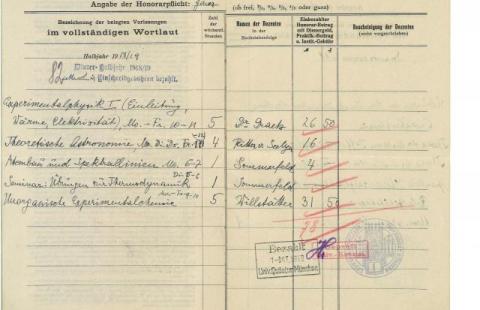 Angabe der Honorarpflicht: ganz
(ob frei, ⁴/₈, ⁶/₈, ⁷/₈ oder ganz)
Bezeichnung der belegten Vorlesungen
im vollständigen Wortlaut
Zahl der wöchentl. Stunden
Namen der Dozenten
in der Reihenfolge
Einbezahlter Honorar-Betrag mit Dienergeld, Praktik.-Beitrag u. Instit.-Gebühr
Bescheinigung der Dozenten
(nicht vorgeschrieben)
Halbjahr 1918/19
Winter-Halbjahr 1918/19
Einschreibgebühren bezahlt.
Experimentalphysik I (Einleitung,
Wärme, Elektrizität), Mo.-Fr. 10-11 5 Dr. Graetz 26 50
Theoretische Astronomie Mo. Di. Do. Fr. 4 Ritter v. Seeliger 16 -
Atombau und Spektrallinien Mi. 6-7 1 Sommerfeld 4 -
Seminar: Übungen zur Thermodynamik 1 Sommerfeld -
Anorganische Experimentalchemie 5 Willstätter 31 50
78
Bezahlt
Univ. München